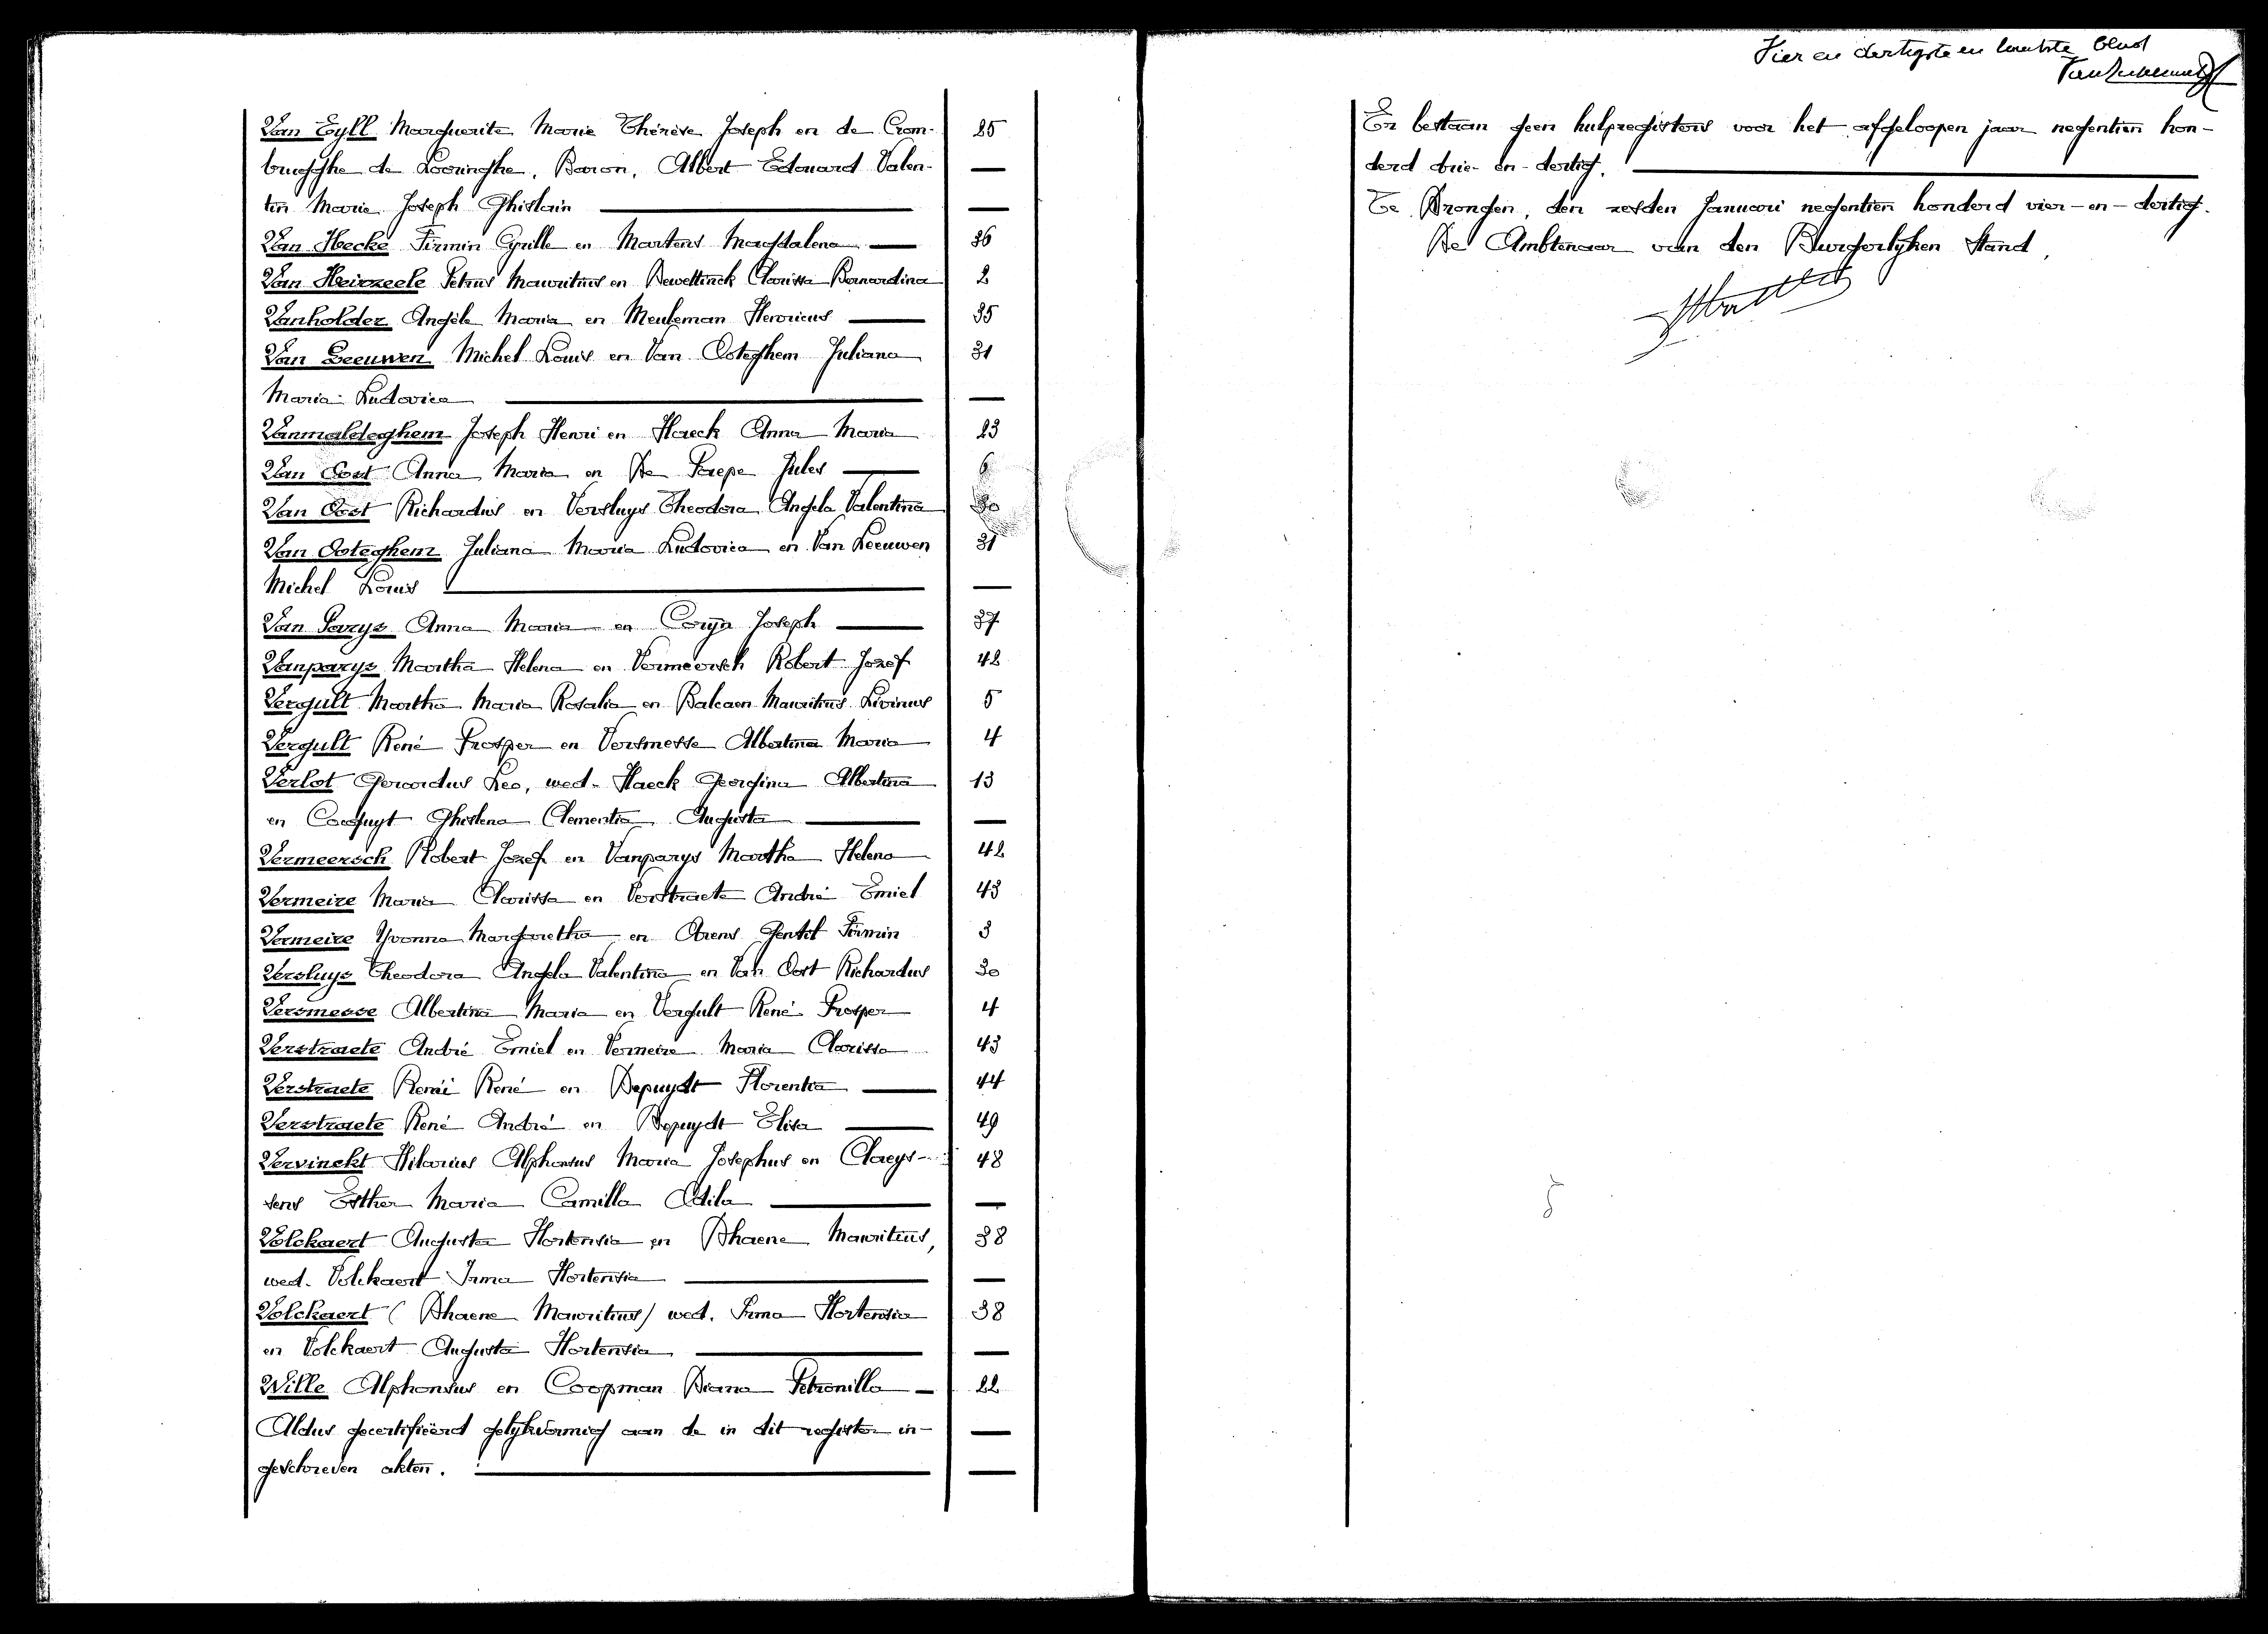 Van Eyll Marguerite Marie Thérèse Joseph en de Crom- 25
brugghe de Looringhe, Baron, Albert Edouard Valen- —
tin Marie Joseph Ghislain —
Van Hecke Firmin Cyrille en Martens Magdalena — 36
Van Heirzeele Petrus Mauritius en Dewettinck Clarissa Bernardina 2
Vanholder Angèle Maria en Meuleman Henricus — 35
Van Leeuwen Michel Louis en Van Ooteghem Juliana 31
Maria Ludovica —
Vanmaldeghem Joseph Henri en Haeck Anna Maria 23
Van Oost Anna Maria en De Paepe Jules — 6
Van Oost Richardus en Versluys Theodora Angela Valentina 30
Van Ooteghem Juliana Maria Ludovica en Van Leeuwen 31
Michel Louis —
Van Parys Anna Maria en Coryn Joseph — 37
Vanparys Martha Helena en Vermeersch Robert Jozef 42
Vergult Martha Maria Rosalia en Balcaen Mauritius Livinus 5
Vergult René Prosper en Versmesse Albertina Maria 4
Verlot Gerardus Leo, wed. Haeck Georgina Albertina 13
en Ghislena Clementia Augusta —
Vermeersch Robert Jozef en Vanparys Martha Helena 42
Vermeire Maria Clarissa en Verstraete André Emiel 43
Vermeire Yvonna Margaretha en Arens Gentil Firmin 3
Versluys Theodora Angela Valentina en Van Oost Richardus 30
Versmesse Albertina Maria en Vergult René Prosper 4
Verstraete André Emiel en Vermeire Maria Clarissa 43
Verstraete Remi René en Depuydt Florentia — 44
Verstraete René André en Depuydt Elisa — 49
Vervinckt Hilarius Alphonsus Maria Josephus en Claeys- 48
sens Esther Maria Camilla Odila —
Volckaert Augusta Hortensia en Dhaene Mauritius, 38
wed. Volckaert Irma Hortensia —
Volckaert (Dhaene Mauritius) wed. Irma Hortensia 38
en Volckaert Augusta Hortensia —
Wille Alphonsus en Coopman Diana Petronilla — 22
Aldus gecertifieërd gelykvormig aan de in dit register in- —
geschreven akten. —
Vier en dertigste en laatste blad
Er bestaan geen hulpregisters voor het afgeloopen jaar negentien hon-
derd drie-en-dertig.
Te Drongen, den zesden Januari negentien honderd vier-en-dertig.
De Ambtenaar van den Burgerlyken Stand,